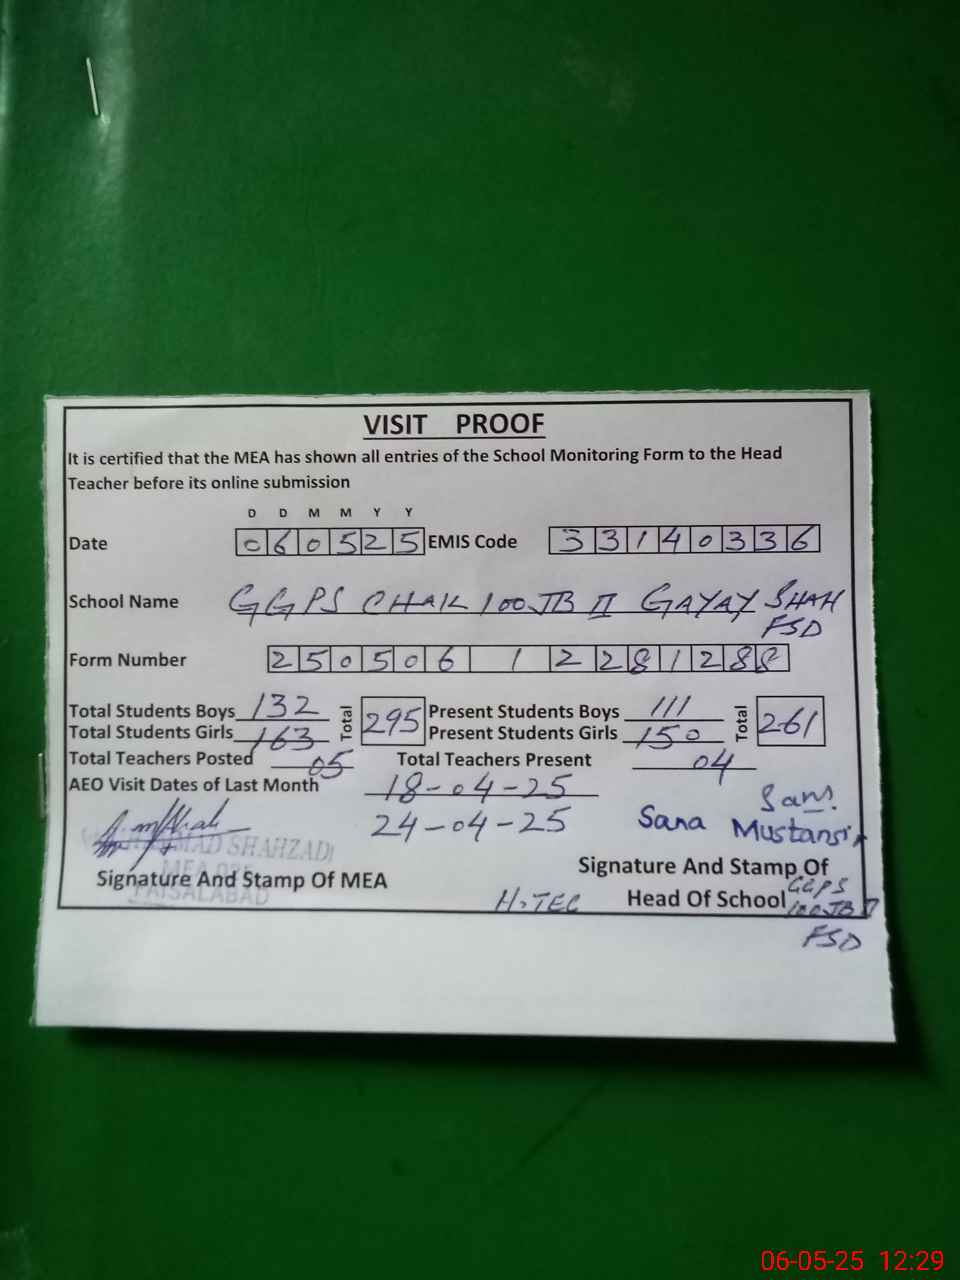 VISIT PROOF
It is certified that the MEA has shown all entries of the School Monitoring Form to the Head
Teacher before its online submission
D D M M Y Y
Date 060525 EMIS Code 33140336
School Name GGPS CHAK 100 JB II GAYAY SHAH
FSD
Form Number 250506 1 2281288
Total Students Boys 132 Total 295 Present Students Boys 111 Total 261
Total Students Girls 163 Present Students Girls 150
Total Teachers Posted 05 Total Teachers Present 04
AEO Visit Dates of Last Month 18-04-25
24-04-25 Sana Mustansir
SHAHZAD
Signature And Stamp Of MEA Signature And Stamp Of
FAISALABAD
H.TEC Head Of School GGPS
100 JB II
FSD
06-05-25 12:29